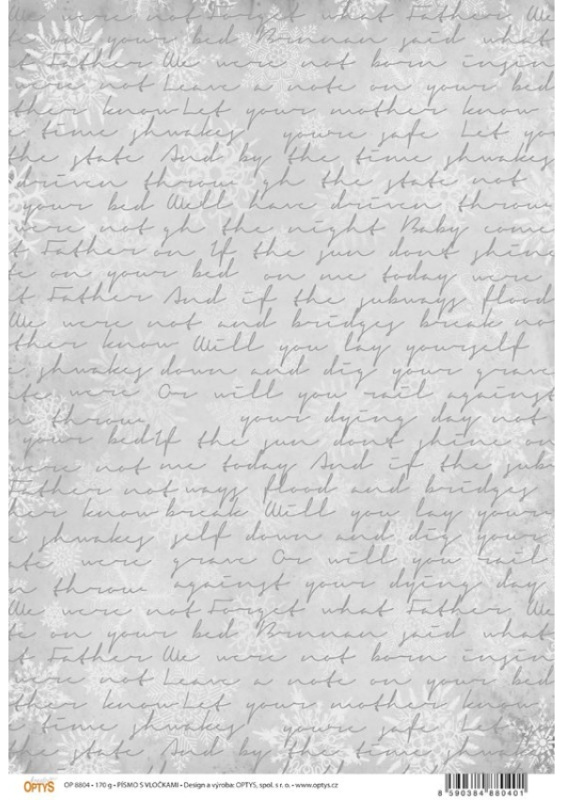 We were not Forget what Father We
te on your bed Brennan said what
t Father We were not born in
were not Leave a note on your bed
ther know Let your mother know
e time shwakes youre safe Let yo
the state And by the time shwakes
driven throw gh the state not
your bed Well have driven throw
were not gh the night Baby come
t Father on If the sun dont shine
te on your bed on me today were
t Father And if the subways flood
We were not and bridges break no
ther know Will you lay yourself
e shwakes down and dig your grave
te were Or will you rail against
n throw your dying day not
your bed If the sun dont shine on
were not me today And if the sub
Father not ways flood and bridges
her know break Will you lay your
e shwakes self down and dig your
te were grave Or will you rail
n throw against your dying day
We were not Forget what Father We
te on your bed Brennan said what
t Father We were not born in
were not Leave a note on your bed
ther know Let your mother know
e time shwakes youre safe Let yo
the state And by the time shwakes
OPTYS OP 8804 • 170 g • PÍSMO S VLOČKAMI • Design a výroba: OPTYS, spol. s r. o. • www.optys.cz
8 590384 880401